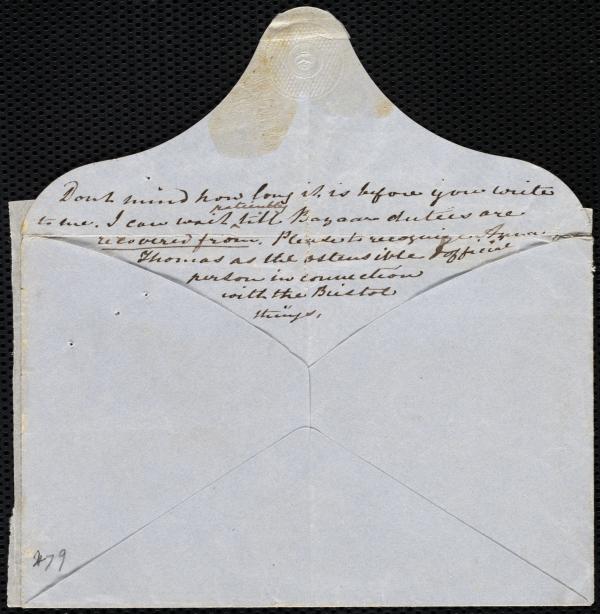 Dont mind how long it is before you write
to me. I can wait patiently till Bazaar duties are
recovered from. Please to recognize Anna
Thomas as the ostensible & official
person in connection
with the Bristol
things.
79